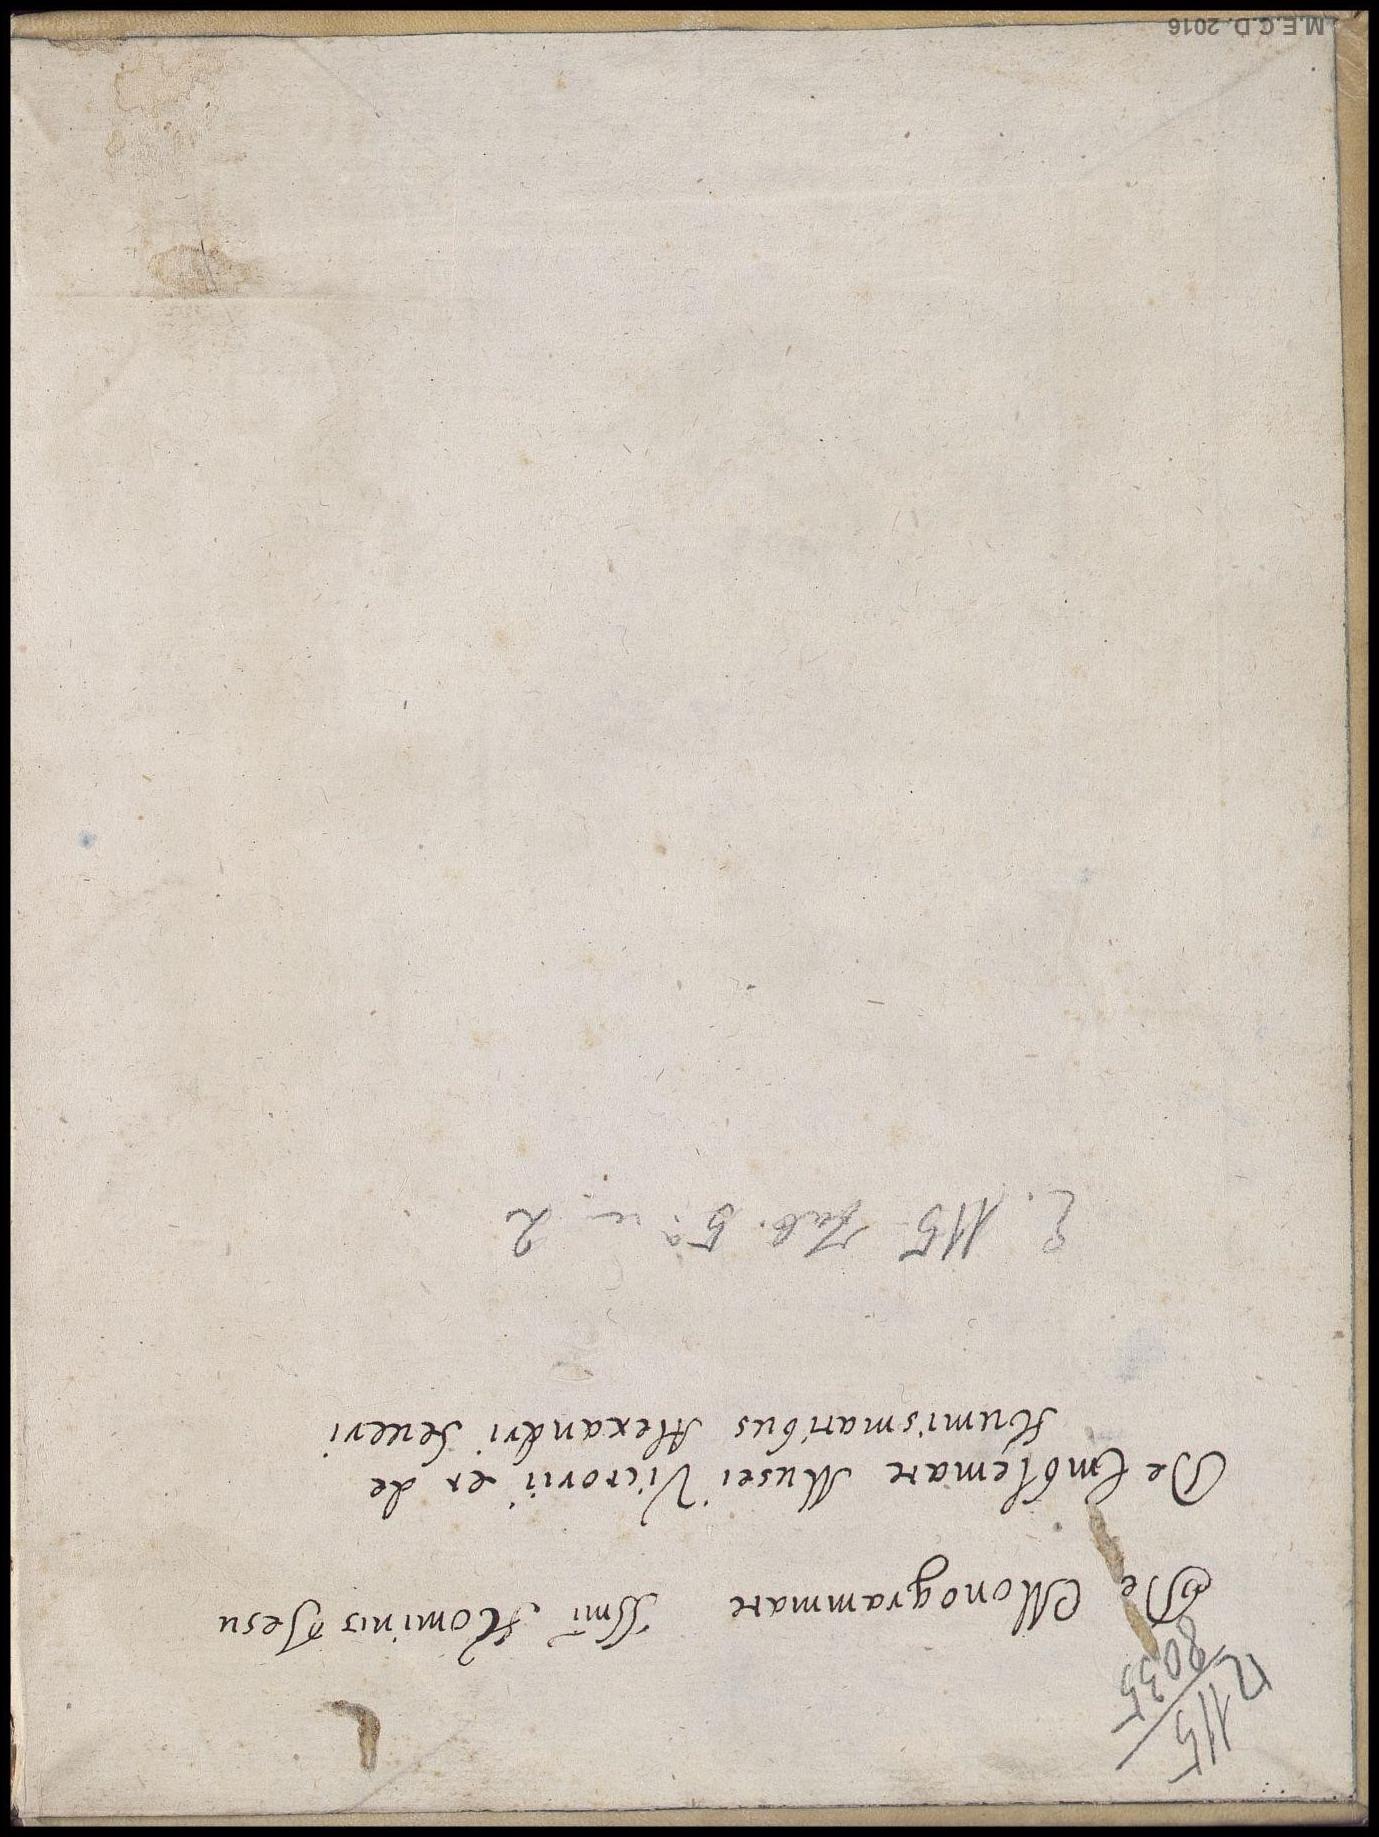 2115
8035
De Monogrammate SSmi Nominis Jesu
De Emblemate Musei Victorii et de
Numismatibus Alexandri Severi
E. 115 Tab. 5ª n. 2
M.E.C.D. 2016